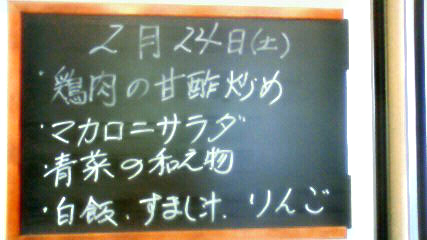 2月24日(土)
・鶏肉の甘酢炒め
・マカロニサラダ
・青菜の和え物
・白飯.すまし汁.りんご